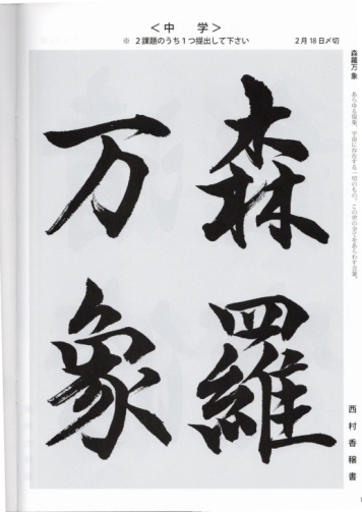 ＜中　学＞
※ 2課題のうち1つ提出して下さい　2月18日〆切
森羅
万象
森羅万象　あらゆる現象、宇宙に存在する一切のもの。この世の全てをあらわす言葉。
西村香穣書